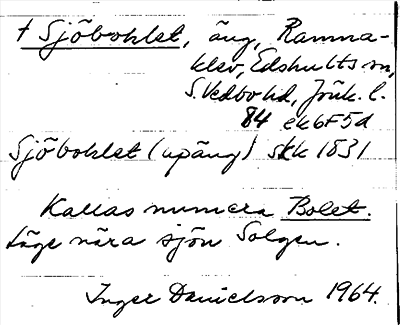 † Sjöbohlet, äng, Ramma-
klev, Edshults sn,
S. Vedbo hd, Jönk. l.
84 ek6F5d
Sjöbohlet (upäng) skk 1831
Kallas numera Bolet.
Läge nära sjön Solgen.
Inger Danielsson 1964.